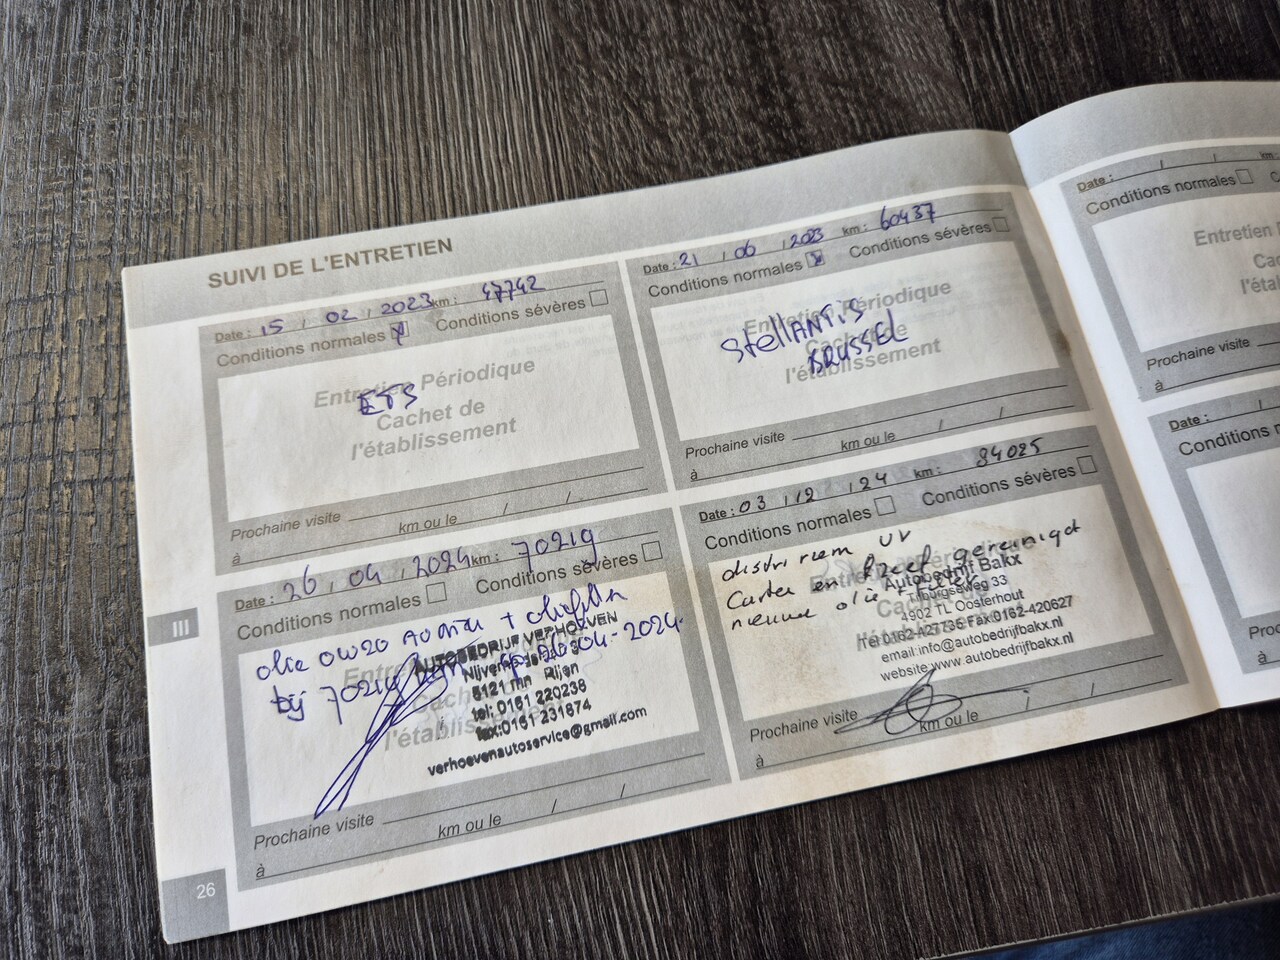 SUIVI DE L'ENTRETIEN
Date : 15 / 02 / 2023 km : 47742
Conditions normales Conditions sévères
Entretien Périodique
ETS
Cachet de
l'établissement
Prochaine visite
à km ou le / /
Date : 21 / 06 / 2023 km : 60437
Conditions normales Conditions sévères
Entretien Périodique
StellANTiS
BRUSSEL
Cachet de
l'établissement
Prochaine visite
à km ou le / /
Date : 26 / 04 / 2024 km : 70219
Conditions normales Conditions sévères
olie 0W20 + oliefilter
bij 70219 26-04-2024.
AUTOBEDRIJF VERHOEVEN
5121 Rijen
tel: 0161 220238
fax:0161 231874
verhoevenautoservice@gmail.com
l'établissement
Prochaine visite
à km ou le / /
Date : 03 / 12 / 24 km : 84025
Conditions normales Conditions sévères
distri riem VV
Carter en gereinigt
nieuwe olie + filter
Autobedrijf Bakx
Tilburgseweg 33
4902 TL Oosterhout
Tel:0162-427735 Fax:0162-420627
email:info@autobedrijfbakx.nl
website:www.autobedrijfbakx.nl
Prochaine visite
à km ou le / /
Date : / / km
Conditions normales
Entretien
Cachet
Prochaine visite
à
Date : /
Conditions
à
III
26